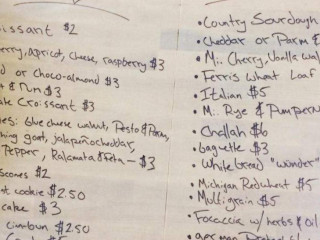 issant $2
erry, apricot, cheese, raspberry $3
d or choco-almond $3
& Rum $3
ate Croissant $3
es: blue cheese walnut, Pesto & Parm,
ning goat, jalapeño cheddar,
Pepper, Kalamata & Feta - $3
scones $2
t cookie $2.50
cake $3
cimabun $2.50
• Country Sourdough
• Cheddar or Parm &
• Mi. Cherry, Vanilla wal
• Ferris Wheat Loaf
• Italian $5
• Mi. Rye & Pumpern
• Challah $6
• baguette $3
• White bread "wonder"
• Michigan Red wheat $5
• Multigrain $5
• Focaccia w/ herbs & oil